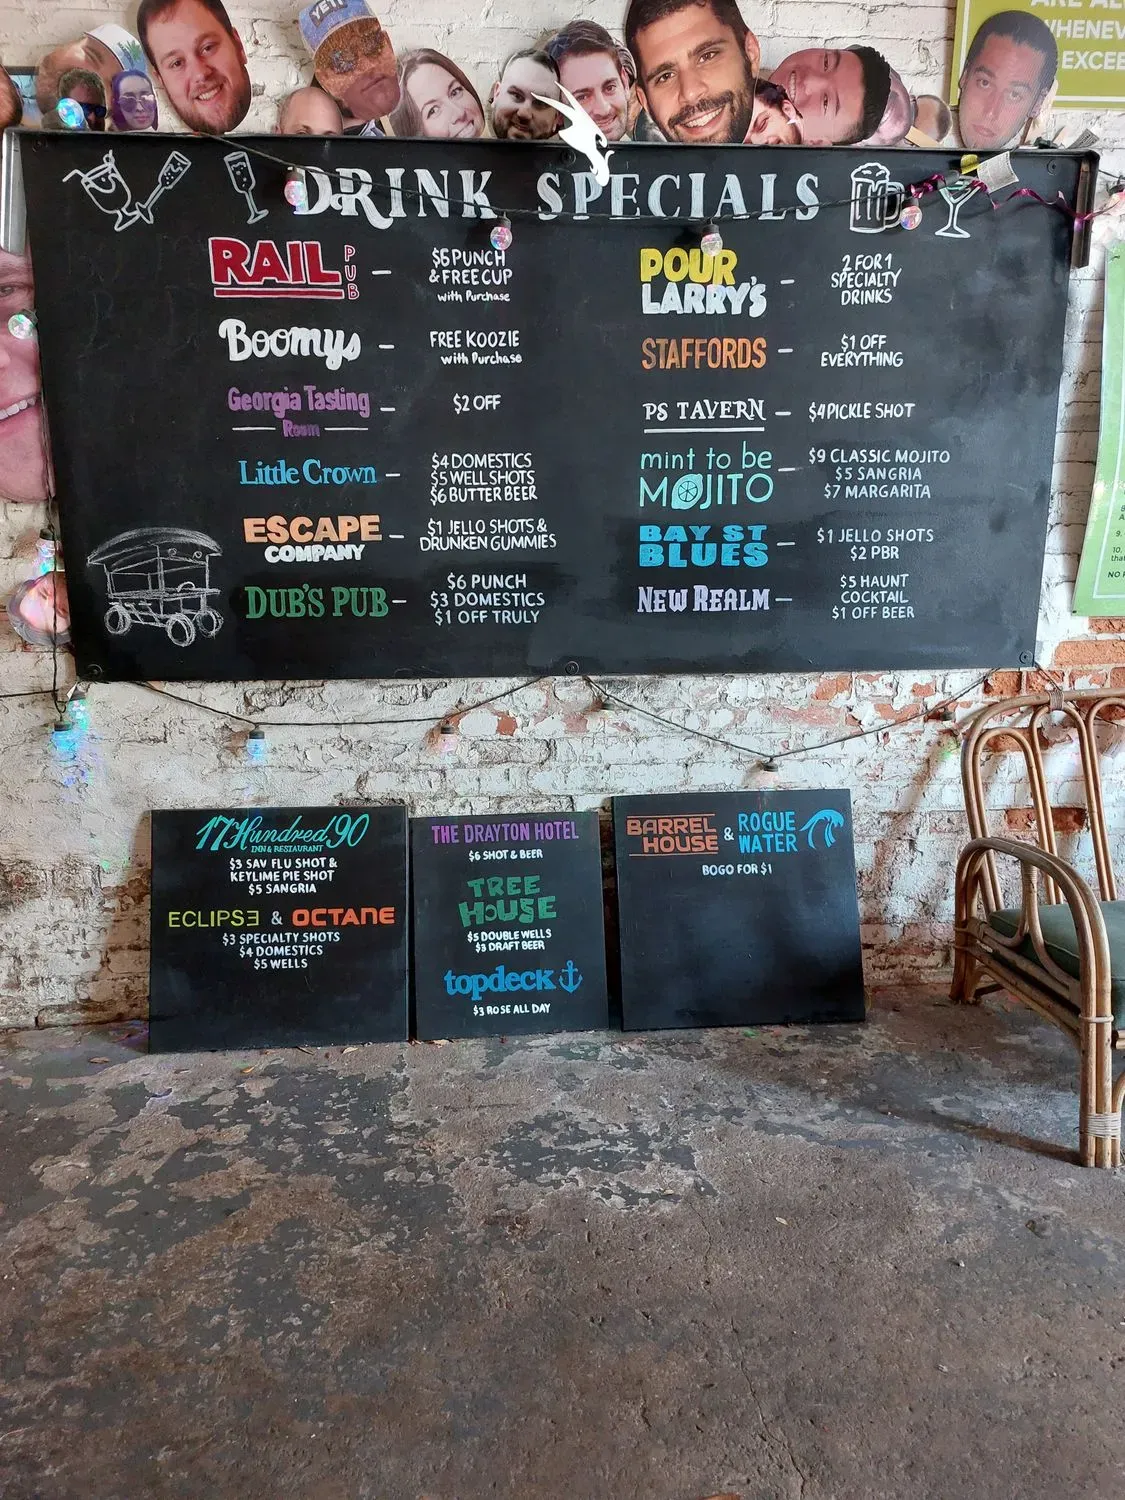 YETI
ARE AL
WHENEV
EXCEE
DRINK SPECIALS
RAIL PUB –
$6 PUNCH
& FREE CUP
with Purchase
Boomys –
FREE KOOZIE
with Purchase
Georgia Tasting
Room
–
$2 OFF
Little Crown –
$4 DOMESTICS
$5 WELL SHOTS
$6 BUTTER BEER
ESCAPE
COMPANY
–
$1 JELLO SHOTS &
DRUNKEN GUMMIES
DUB'S PUB –
$6 PUNCH
$3 DOMESTICS
$1 OFF TRULY
POUR
LARRY'S
–
2 FOR 1
SPECIALTY
DRINKS
STAFFORDS –
$1 OFF
EVERYTHING
PS TAVERN – $4 PICKLE SHOT
mint to be
MOJITO
–
$9 CLASSIC MOJITO
$5 SANGRIA
$7 MARGARITA
BAY ST
BLUES
–
$1 JELLO SHOTS
$2 PBR
NEW REALM –
$5 HAUNT
COCKTAIL
$1 OFF BEER
17Hundred90
INN & RESTAURANT
$3 SAV FLU SHOT &
KEYLIME PIE SHOT
$5 SANGRIA
ECLIPSE & OCTANE
$3 SPECIALTY SHOTS
$4 DOMESTICS
$5 WELLS
THE DRAYTON HOTEL
$6 SHOT & BEER
TREE
HOUSE
$5 DOUBLE WELLS
$3 DRAFT BEER
topdeck
$3 ROSE ALL DAY
BARREL
HOUSE
&
ROGUE
WATER
BOGO FOR $1